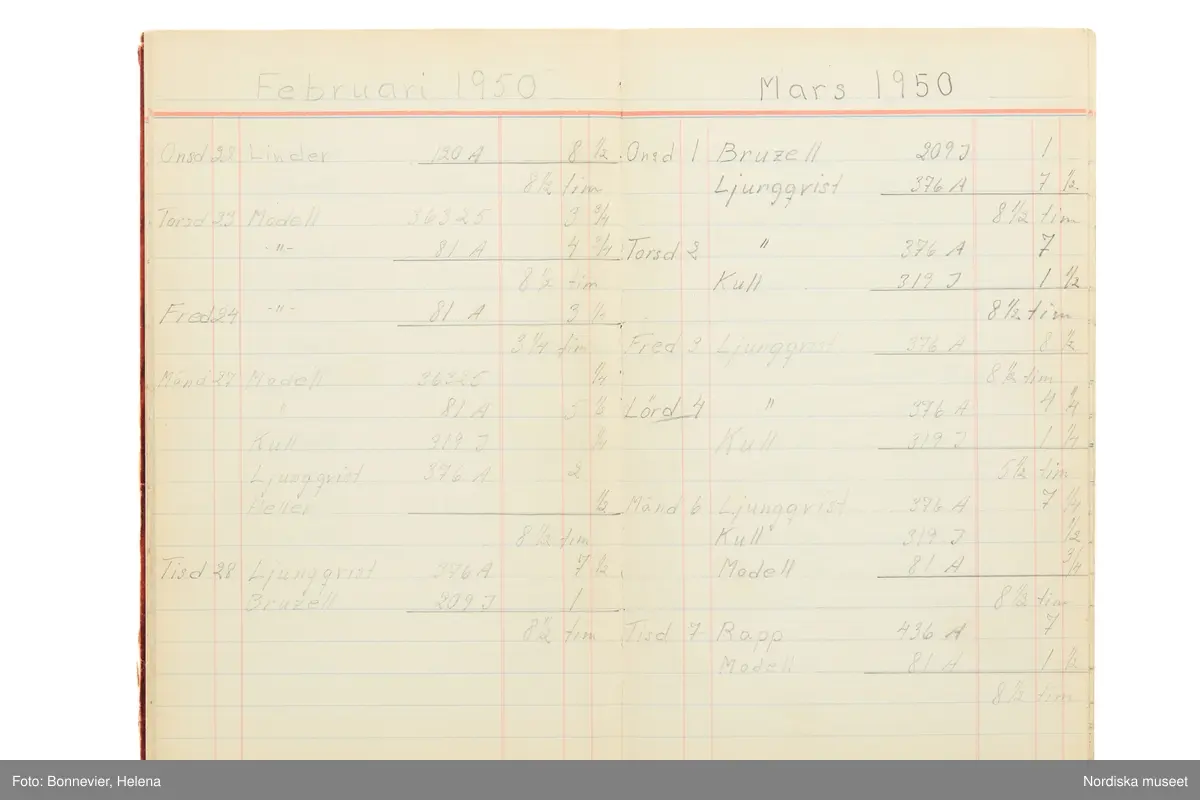 Februari 1950
Onsd 22 Linder 120 A 8 1/2
8 1/2 tim
Torsd 23 Modell 36325 3 3/4
-"- 81 A 4 3/4
8 1/2 tim
Fred 24 -"- 81 A 3 1/4
3 1/4 tim
Månd 27 Modell 36325 1/4
" 81 A 5 1/2
Kull 319 J 1/4
Ljungqvist 376 A 2
1/2
8 1/2 tim
Tisd 28 Ljungqvist 376 A 7 1/2
Bruzell 209 J 1
8 1/2 tim
Mars 1950
Onsd 1 Bruzell 209 J 1
Ljungqvist 376 A 7 1/2
8 1/2 tim
Torsd 2 " 376 A 7
Kull 319 J 1 1/2
8 1/2 tim
Fred 3 Ljungqvist 376 A 8 1/2
8 1/2 tim
Lörd 4 " 376 A 4 1/4
Kull 319 J 1 1/4
5 1/2 tim
Månd 6 Ljungqvist 376 A 7 1/4
Kull 319 J 1/2
Modell 81 A 3/4
8 1/2 tim
Tisd 7 Rapp 436 A 7
Modell 81 A 1 1/2
8 1/2 tim
Foto: Bonnevier, Helena
Nordiska museet